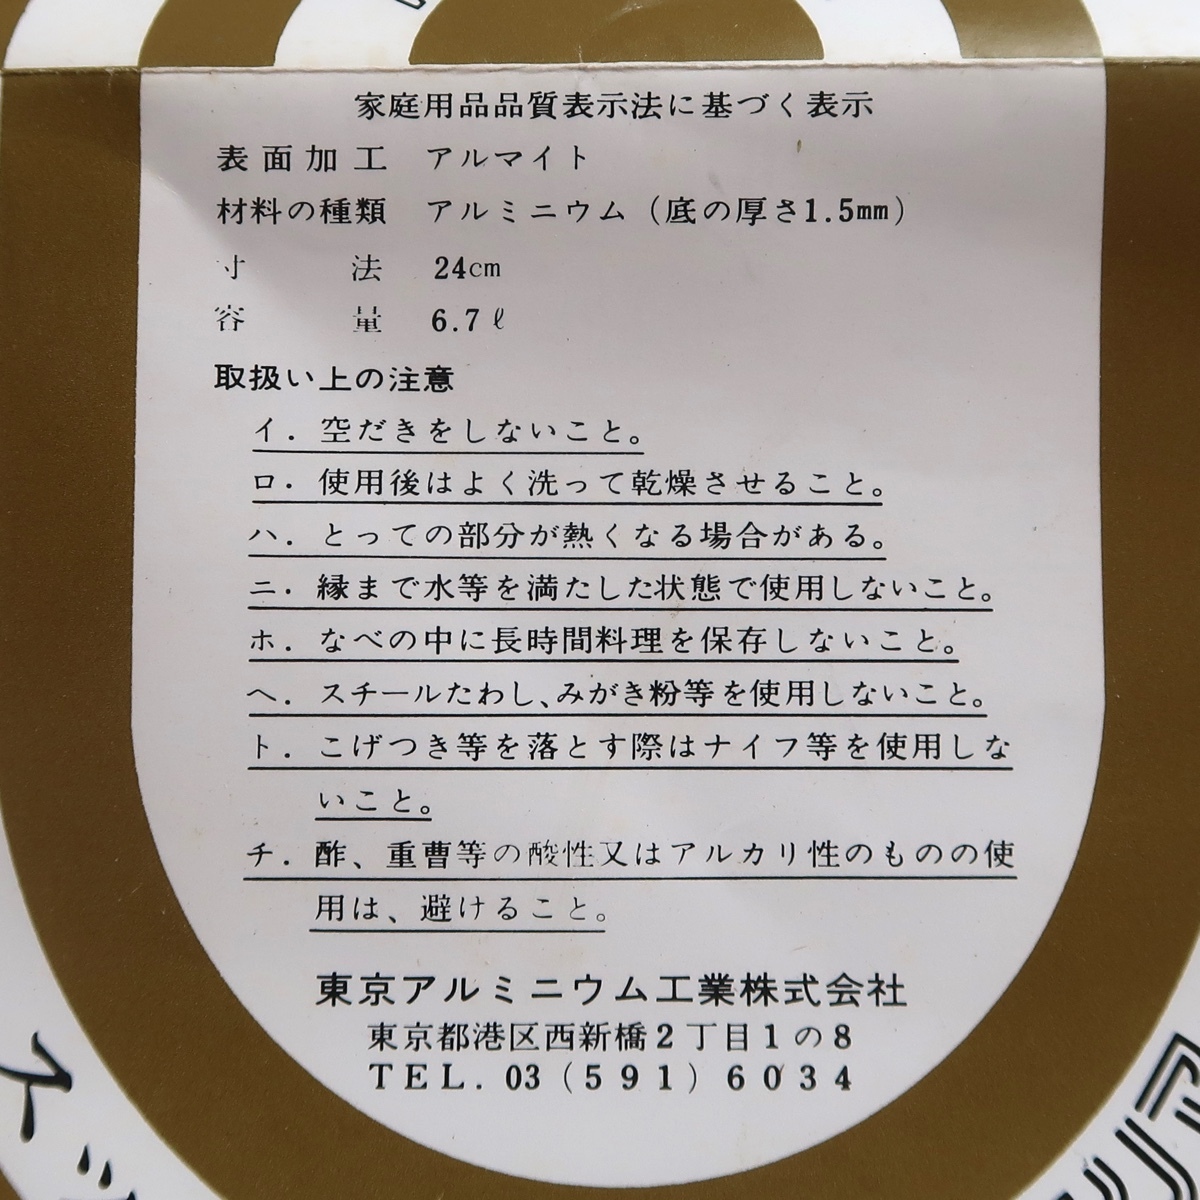 家庭用品品質表示法に基づく表示
表面加工 アルマイト
材料の種類 アルミニウム（底の厚さ1.5mm）
寸法 24cm
容量 6.7ℓ
取扱い上の注意
イ．空だきをしないこと。
ロ．使用後はよく洗って乾燥させること。
ハ．とっての部分が熱くなる場合がある。
ニ．縁まで水等を満たした状態で使用しないこと。
ホ．なべの中に長時間料理を保存しないこと。
ヘ．スチールたわし、みがき粉等を使用しないこと。
ト．こげつき等を落とす際はナイフ等を使用しな
いこと。
チ．酢、重曹等の酸性又はアルカリ性のものの使
用は、避けること。
東京アルミニウム工業株式会社
東京都港区西新橋2丁目1の8
TEL. 03（591）6034